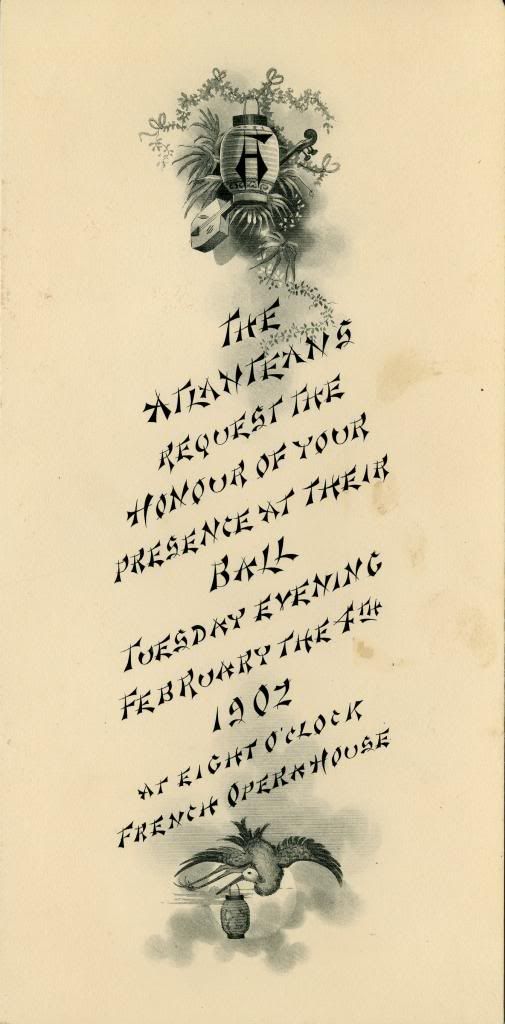 A
THE
ATLANTEANS
REQUEST THE
HONOUR OF YOUR
PRESENCE AT THEIR
BALL
TUESDAY EVENING
FEBRUARY THE 4TH
1902
AT EIGHT O'CLOCK
FRENCH OPERA HOUSE